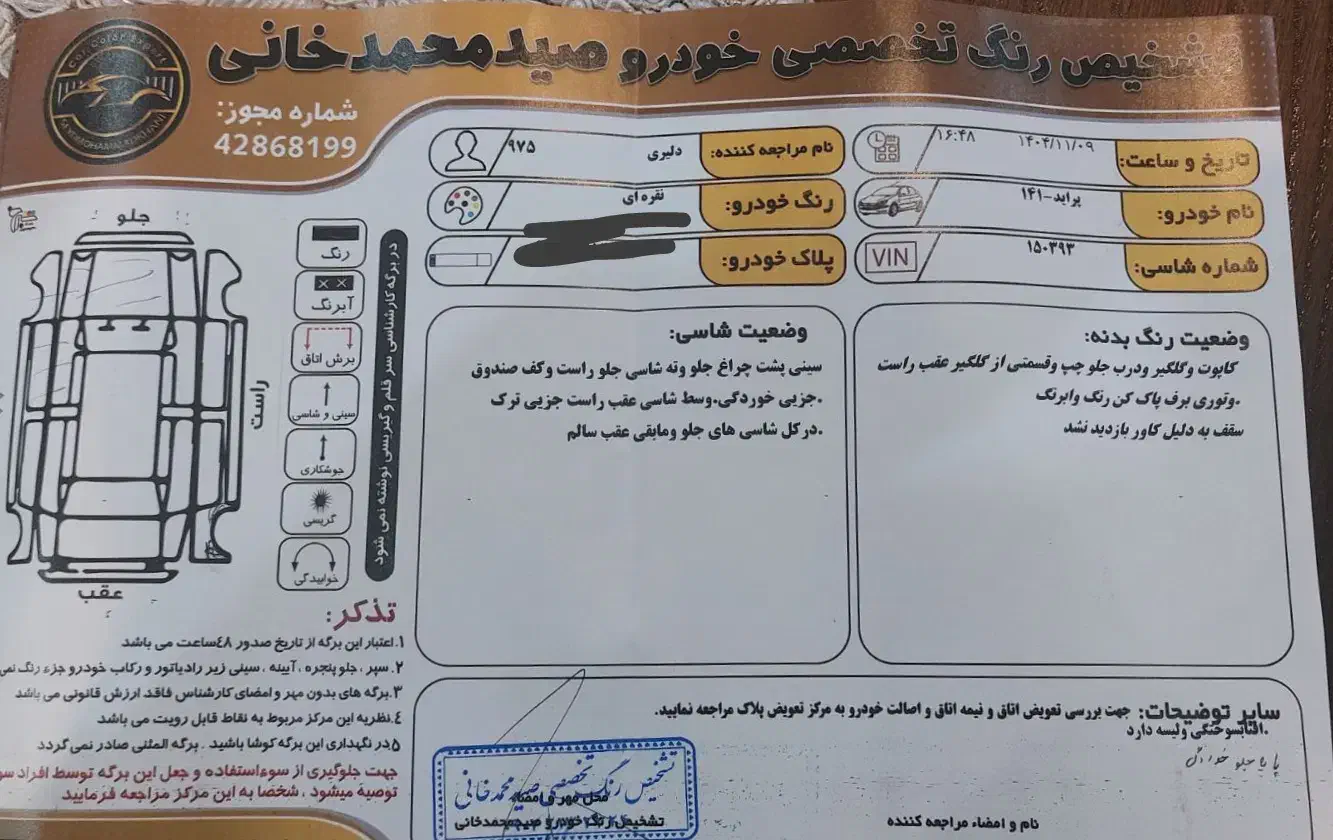 تشخیص رنگ تخصصی خودرو صیدمحمدخانی
Car Color Expert
شماره مجوز:
42868199
تاریخ و ساعت: ۱۴۰۴/۱۱/۰۹ ۱۶:۴۸
نام مراجعه کننده: دلیری ۹۷۵
نام خودرو: پراید-۱۴۱
رنگ خودرو: نقره ای
شماره شاسی: ۱۵۰۳۹۳ VIN
پلاک خودرو:
وضعیت رنگ بدنه:
کاپوت وگلگیر ودرب جلو چپ وقسمتی از گلگیر عقب راست
.وتوری برف پاک کن رنگ وابرنگ
سقف به دلیل کاور بازدید نشد
وضعیت شاسی:
سینی پشت چراغ جلو وته شاسی جلو راست وکف صندوق
.جزیی خوردگی.وسط شاسی عقب راست جزیی ترک
.درکل شاسی های جلو ومابقی عقب سالم
در برگه کارشناسی سر قلم و گیریسی نوشته نمی شود
رنگ
آبرنگ
برش اتاق
سینی و شاسی
جوشکاری
گریسی
خوابیدگی
جلو
راست
عقب
تذکر:
۱.اعتبار این برگه از تاریخ صدور ۴۸ساعت می باشد
۲. سپر ، جلو پنجره ، آیینه ، سینی زیر رادیاتور و رکاب خودرو جزء رنگ نمی
۳.برگه های بدون مهر و امضای کارشناس فاقد ارزش قانونی می باشد
۴.نظریه این مرکز مربوط به نقاط قابل رویت می باشد
۵در نگهداری این برگه کوشا باشید . برگه المثنی صادر نمی گردد
جهت جلوگیری از سوءاستفاده و جعل این برگه توسط افراد سو
توصیه میشود ، شخصا به این مرکز مراجعه فرمایید
سایر توضیحات: جهت بررسی تعویض اتاق و نیمه اتاق و اصالت خودرو به مرکز تعویض پلاک مراجعه نمایید.
.افتابسوختگی ولیسه دارد
پایا جلو خوردگی
تشخیص رنگ تخصصی صیدمحمدخانی
محل مهر و امضاء
تشخیص رنگ خودرو صیدمحمدخانی
نام و امضاء مراجعه کننده